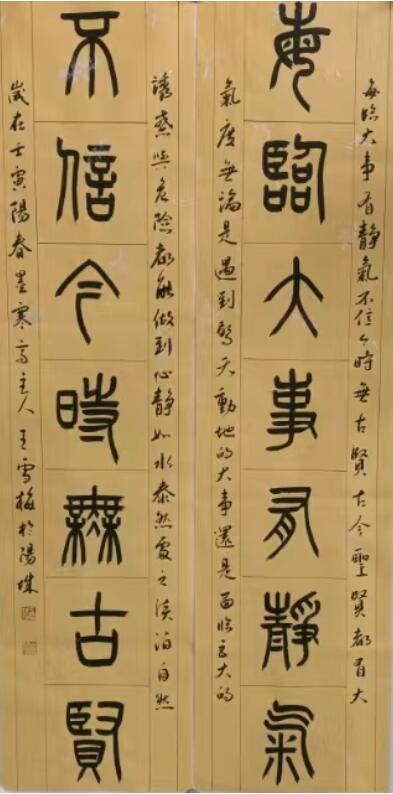 每臨大事有靜氣不信今時無古賢古今聖賢都有大
每臨大事有靜氣
氣度無論是遇到驚天動地的大事還是面臨巨大的
誘惑與危險都能做到心靜如水泰然處之淡泊自然
不信今時無古賢
歲在壬寅陽春墨寒主人王雪梅於陽